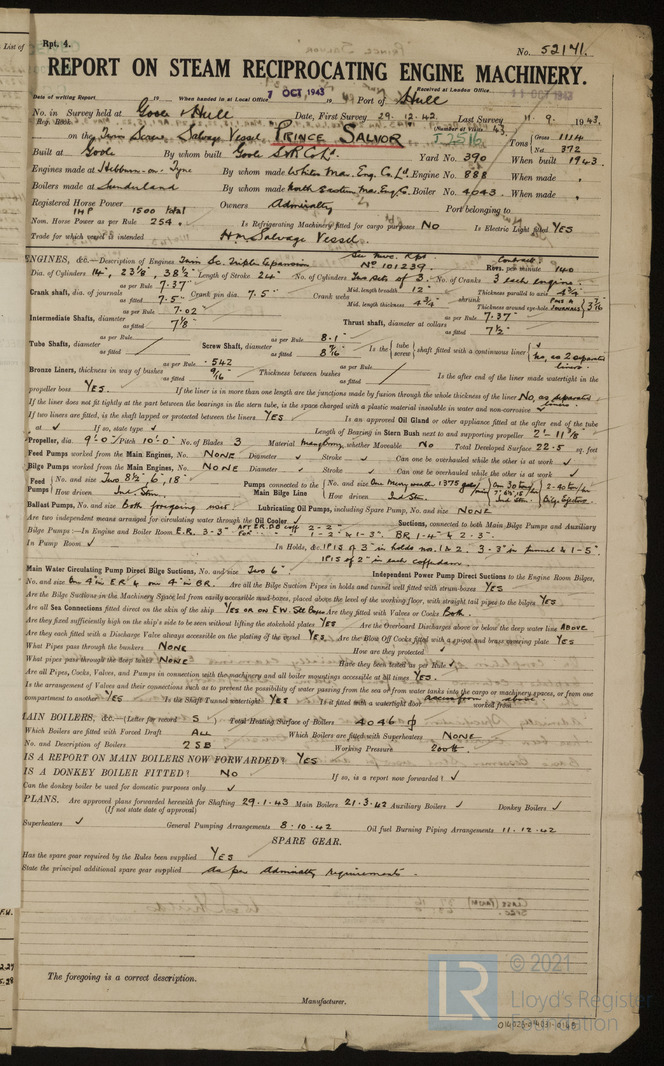 List of
Rpt. 4.
No. 52171.
REPORT ON STEAM RECIPROCATING ENGINE MACHINERY.
Received at London Office 11 OCT 1943
Date of writing Report 19 When handed in at Local Office 7 OCT 1943 19 Port of Hull
No. in Survey held at Goole & Hull Date, First Survey 29.12.42 Last Survey 11.9.1943.
Reg. Book. (Number of Visits 43.
on the Twin Screw Salvage Vessel PRINCE SALVOR Tons Gross 1114 Net 372
Built at Goole By whom built Goole S.B. & R. Co. Ld. Yard No. 390 When built 1943.
Engines made at Hebburn-on-Tyne By whom made White's Mar. Eng. Co. Ld. Engine No. 888 When made
Boilers made at Sunderland By whom made North Eastern Mar. Eng. Co. Boiler No. 4043 When made
Registered Horse Power Owners Admiralty Port belonging to
IHP 1500 total
Nom. Horse Power as per Rule 254. Is Refrigerating Machinery fitted for cargo purposes No Is Electric Light fitted YES
Trade for which vessel is intended H.M. Salvage Vessel
See Nwc. Rpt No 101239.
ENGINES, &c.—Description of Engines Twin Sc. Triple Expansion Revs. per minute 140
Dia. of Cylinders 14", 23⅛", 38½" Length of Stroke 24" No. of Cylinders Two sets of 3. No. of Cranks 3 each engine.
Crank shaft, dia. of journals as per Rule 7.37" as fitted 7.5" Crank pin dia. 7.5" Crank webs Mid. length breadth 12" Mid. length thickness 4¾" shrunk Thickness parallel to axis 4¾" Thickness around eye-hole 3 3/16
Intermediate Shafts, diameter as per Rule 7.02 as fitted 7⅛" Thrust shaft, diameter at collars as per Rule 7.37" as fitted 7½"
Tube Shafts, diameter as per Rule as fitted Screw Shaft, diameter as per Rule 8.1" as fitted 8 7/16" Is the tube screw shaft fitted with a continuous liner No, as 2 separate liners
Bronze Liners, thickness in way of bushes as per Rule .542 as fitted 9/16" Thickness between bushes as per Rule as fitted Is the after end of the liner made watertight in the
propeller boss YES. If the liner is in more than one length are the junctions made by fusion through the whole thickness of the liner No, as separate liners
If the liner does not fit tightly at the part between the bearings in the stern tube, is the space charged with a plastic material insoluble in water and non-corrosive
If two liners are fitted, is the shaft lapped or protected between the liners YES Is an approved Oil Gland or other appliance fitted at the after end of the tube
shaft If so, state type Length of Bearing in Stern Bush next to and supporting propeller 2'-11⅞"
Propeller, dia. 9'.0" Pitch 10'.0" No. of Blades 3 Material Mang. bronz. whether Moveable No Total Developed Surface 22.5 sq. feet
Feed Pumps worked from the Main Engines, No. NONE Diameter Stroke Can one be overhauled while the other is at work
Bilge Pumps worked from the Main Engines, No. NONE Diameter Stroke Can one be overhauled while the other is at work
Feed Pumps No. and size Two 8½".6".18" How driven Ind. Stm. Pumps connected to the Main Bilge Line No. and size How driven Ind. Stm.
Ballast Pumps, No. and size Both foregoing Lubricating Oil Pumps, including Spare Pump, No. and size NONE
Are two independent means arranged for circulating water through the Oil Cooler Suctions, connected to both Main Bilge Pumps and Auxiliary
Bilge Pumps:—In Engine and Boiler Room E.R. 3-3" BR 1-4" & 2-3".
In Pump Room In Holds, &c. 1 PIS of 3" in holds nos. 1 & 2. 3-3" in tunnel & 1-5".
1 PIS of 2" in each cofferdam.
Main Water Circulating Pump Direct Bilge Suctions, No. and size Two 6". Independent Power Pump Direct Suctions to the Engine Room Bilges,
No. and size One 4" in ER & one 4" in B.R. Are all the Bilge Suction Pipes in holds and tunnel well fitted with strum-boxes YES
Are the Bilge Suctions in the Machinery Space led from easily accessible mud-boxes, placed above the level of the working floor, with straight tail pipes to the bilges YES
Are all Sea Connections fitted direct on the skin of the ship Yes or on E.W. Stl Boxes Are they fitted with Valves or Cocks Both.
Are they fixed sufficiently high on the ship's side to be seen without lifting the stokehold plates YES Are the Overboard Discharges above or below the deep water line ABOVE
Are they each fitted with a Discharge Valve always accessible on the plating of the vessel YES. Are the Blow Off Cocks fitted with a spigot and brass covering plate YES
What Pipes pass through the bunkers NONE How are they protected
What pipes pass through the deep tanks NONE Have they been tested as per Rule
Are all Pipes, Cocks, Valves, and Pumps in connection with the machinery and all boiler mountings accessible at all times YES.
Is the arrangement of Valves and their connections such as to prevent the possibility of water passing from the sea or from water tanks into the cargo or machinery spaces, or from one
compartment to another YES Is the Shaft Tunnel watertight YES Is it fitted with a watertight door access from above worked from
MAIN BOILERS, &c.—(Letter for record S) Total Heating Surface of Boilers 4046 sq. ft
Which Boilers are fitted with Forced Draft ALL Which Boilers are fitted with Superheaters NONE
No. and Description of Boilers 2 SB Working Pressure 200 lb
IS A REPORT ON MAIN BOILERS NOW FORWARDED? YES
IS A DONKEY BOILER FITTED? NO If so, is a report now forwarded?
Can the donkey boiler be used for domestic purposes only
PLANS. Are approved plans forwarded herewith for Shafting 29.1.43 Main Boilers 21.3.42 Auxiliary Boilers Donkey Boilers
(If not state date of approval)
Superheaters General Pumping Arrangements 8.10.42 Oil fuel Burning Piping Arrangements 11.12.42
SPARE GEAR.
Has the spare gear required by the Rules been supplied YES
State the principal additional spare gear supplied as per Admiralty requirements.
The foregoing is a correct description.
Manufacturer.
© 2021
LR
Lloyd's Register
Foundation